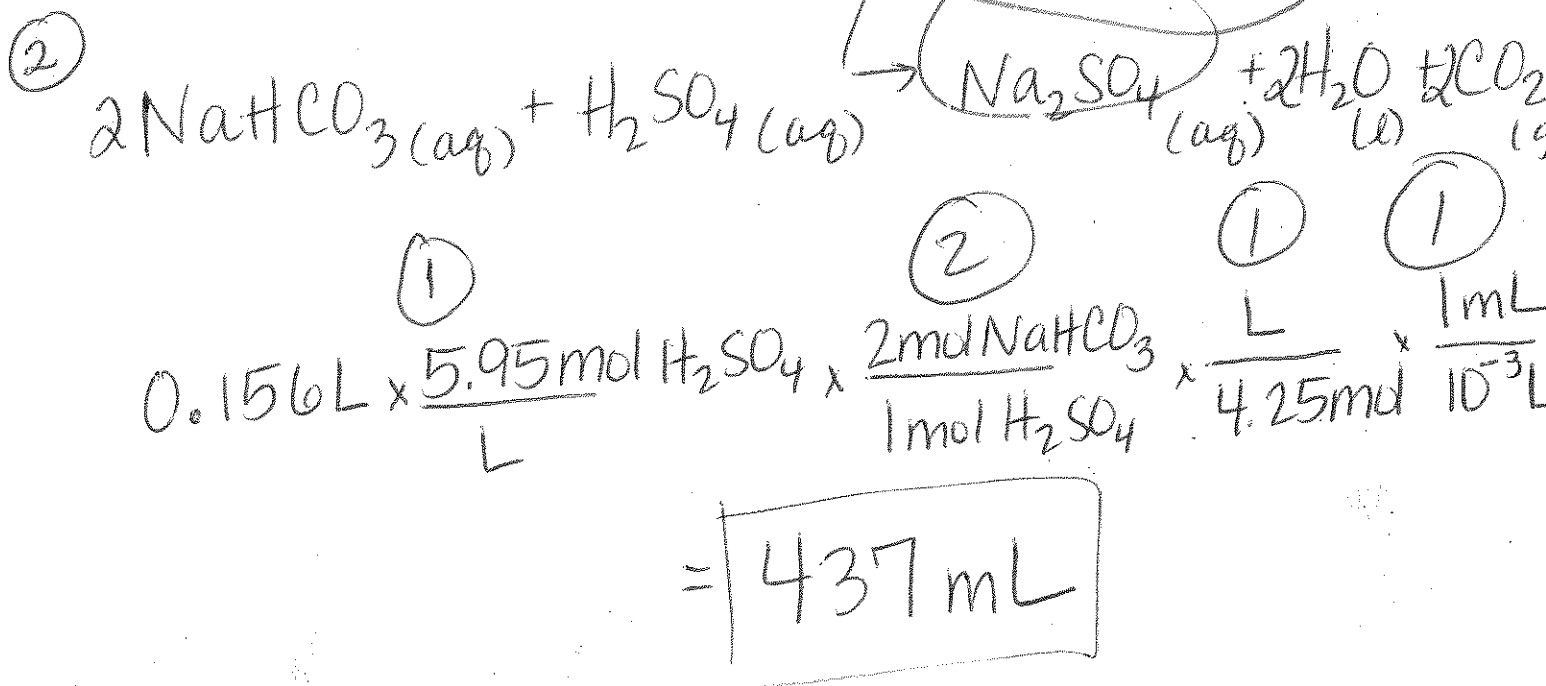 ②
2NaHCO₃(aq) + H₂SO₄(aq) → Na₂SO₄(aq) + 2H₂O(l) + 2CO₂
① ② ① ①
0.156L x 5.95mol H₂SO₄/L x 2mol NaHCO₃/1mol H₂SO₄ x L/4.25mol x 1mL/10⁻³L
= 437 mL